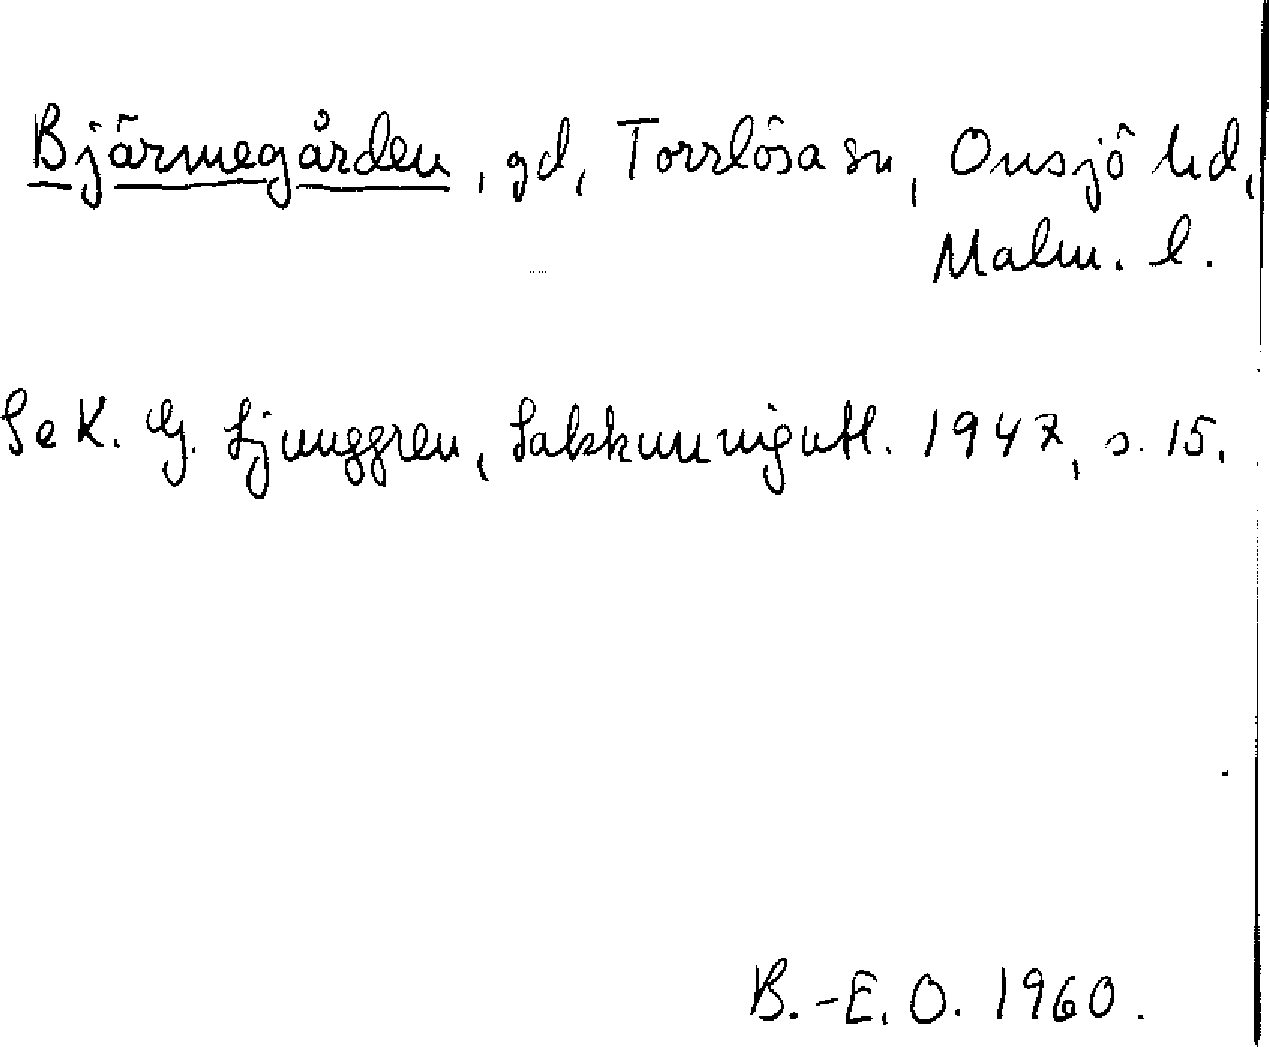 Bjärmegården, gd, Torrlösa sn, Onsjö hd,
Malm. l.
Se K. G. Ljunggren, Sakkunnigutl. 1947, s. 15.
B.-E. O. 1960.